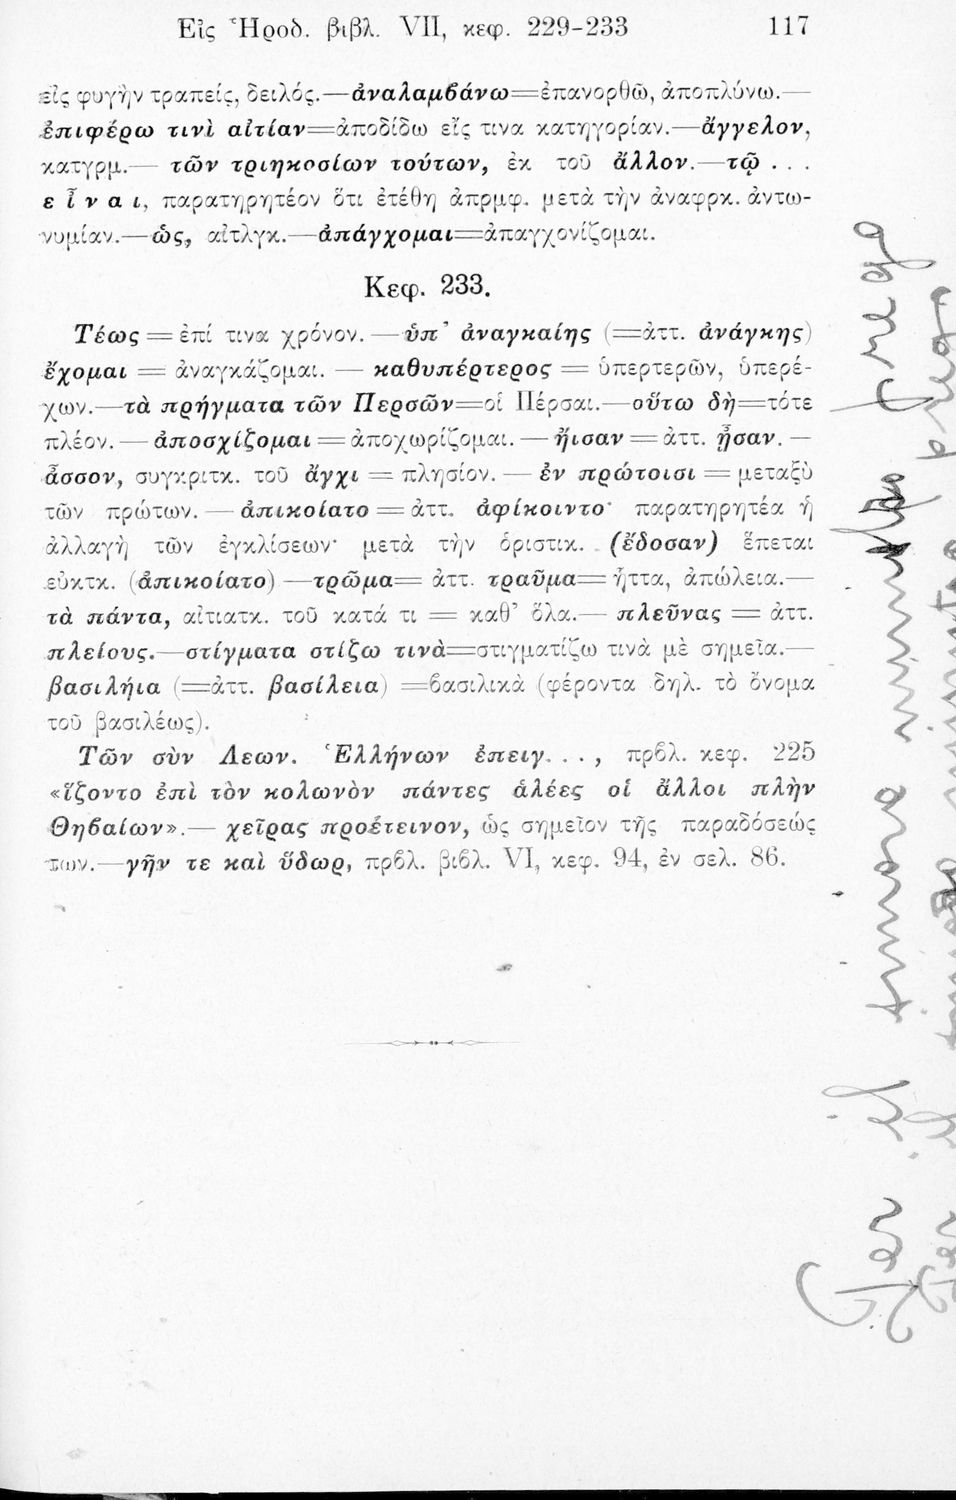 Εἰς Ἡροδ. βιβλ. VII, κεφ. 229-233 117
εἰς φυγὴν τραπείς, δειλός.—ἀναλαμβάνω=ἐπανορθῶ, ἀποπλύνω.—
ἐπιφέρω τινὶ αἰτίαν=ἀποδίδω εἴς τινα κατηγορίαν.—ἄγγελον,
κατγρμ.— τῶν τριηκοσίων τούτων, ἐκ τοῦ ἄλλον.—τῷ . . .
εἶναι, παρατηρητέον ὅτι ἐτέθη ἀπρμφ. μετὰ τὴν ἀναφρκ. ἀντω-
νυμίαν.—ὡς, αἰτλγκ.—ἀπάγχομαι=ἀπαγχονίζομαι.
Κεφ. 233.
Τέως = ἐπί τινα χρόνον. — ὑπ' ἀναγκαίης (=ἀττ. ἀνάγκης)
ἔχομαι = ἀναγκάζομαι. — καθυπέρτερος = ὑπερτερῶν, ὑπερέ-
χων.—τὰ πρήγματα τῶν Περσῶν=οἱ Πέρσαι.—οὕτω δὴ=τότε
πλέον. — ἀποσχίζομαι = ἀποχωρίζομαι. — ἤισαν = ἀττ. ᾖσαν. —
ἆσσον, συγκριτκ. τοῦ ἄγχι = πλησίον. — ἐν πρώτοισι = μεταξὺ
τῶν πρώτων. — ἀπικοίατο = ἀττ. ἀφίκοιντο· παρατηρητέα ἡ
ἀλλαγὴ τῶν ἐγκλίσεων· μετὰ τὴν ὁριστικ. (ἔδοσαν) ἕπεται
εὐκτκ. (ἀπικοίατο) —τρῶμα= ἀττ. τραῦμα= ἧττα, ἀπώλεια.—
τὰ πάντα, αἰτιατκ. τοῦ κατά τι = καθ' ὅλα.— πλεῦνας = ἀττ.
πλείους.—στίγματα στίζω τινὰ=στιγματίζω τινὰ μὲ σημεῖα.—
βασιλήια (=ἀττ. βασίλεια) =βασιλικὰ (φέροντα δηλ. τὸ ὄνομα
τοῦ βασιλέως).
Τῶν σὺν Λεων. Ἑλλήνων ἐπειγ. . . , πρβλ. κεφ. 225
«ἵζοντο ἐπὶ τὸν κολωνὸν πάντες ἁλέες οἱ ἄλλοι πλὴν
Θηβαίων».— χεῖρας προέτεινον, ὡς σημεῖον τῆς παραδόσεώς
των.—γῆν τε καὶ ὕδωρ, πρβλ. βιβλ. VI, κεφ. 94, ἐν σελ. 86.